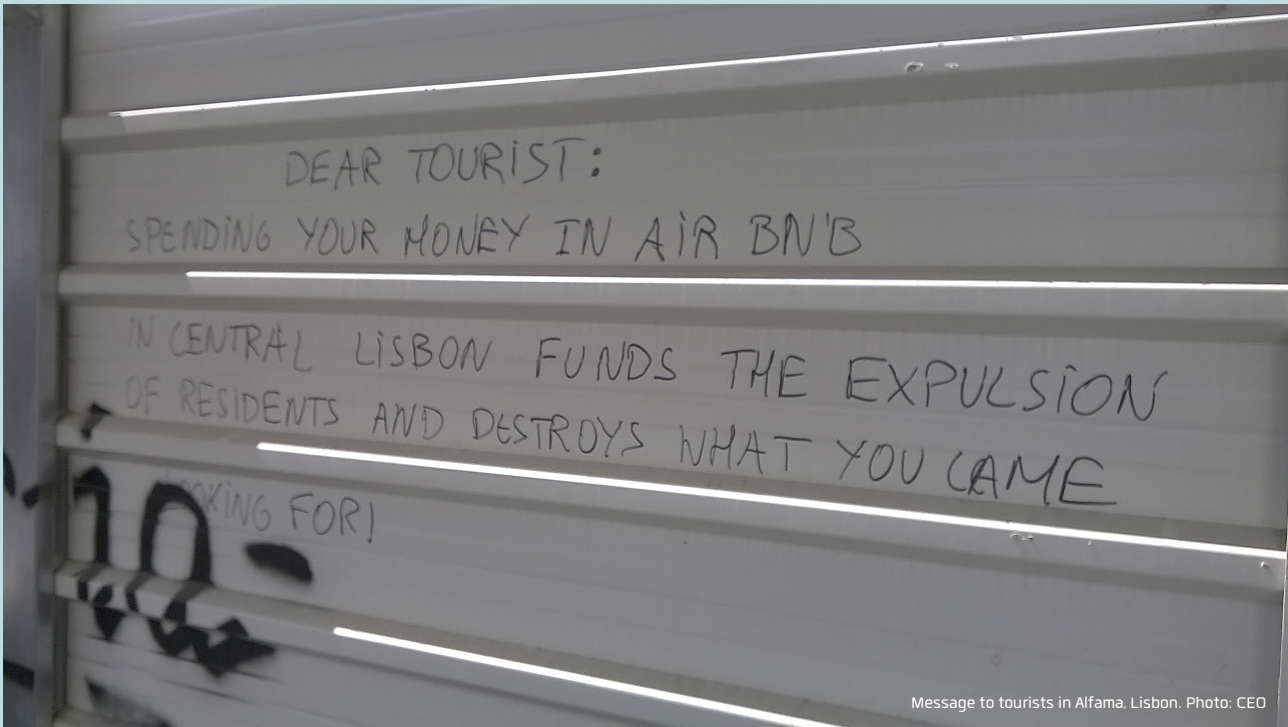 DEAR TOURIST:
SPENDING YOUR MONEY IN AIR BN'B
IN CENTRAL LISBON FUNDS THE EXPULSION
OF RESIDENTS AND DESTROYS WHAT YOU CAME
LOOKING FOR!
Message to tourists in Alfama, Lisbon. Photo: CEO